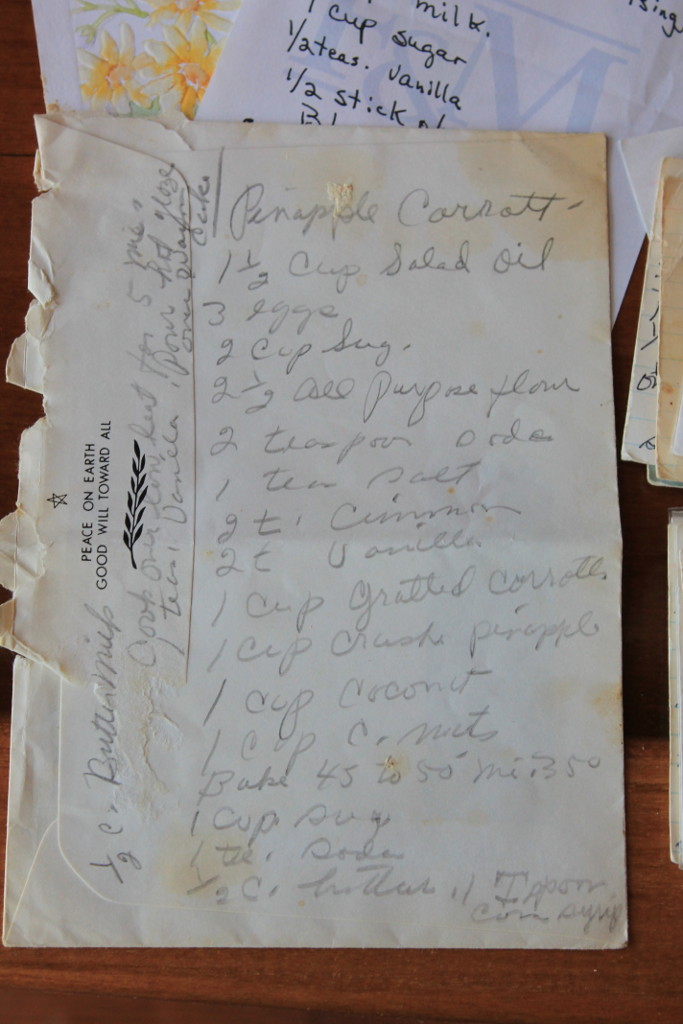 milk.
1 cup sugar
1/2 teas. vanilla
1/2 stick
Pinapple Carrott-
Cake
1 1/2 Cup Salad Oil
3 eggs
2 Cup Sug.
2 1/2 all Purpose flour
2 teaspoon soda
1 tea salt
2 t. Cinnmon
2 t Vanilla
1 Cup gratted Carrotts
1 Cup Crush pinapple
1 Cup Coconut
1 Cup C. nuts
Bake 45 to 50 mi. 350
1 Cup sug
1 te. soda
1/2 C. butter, 1 Tspoon
corn syrip
1/2 C. Buttermilk
Cook over low heat for 5 min
teas. Vanilla. Pour hot glaze
over warm
PEACE ON EARTH
GOOD WILL TOWARD ALL